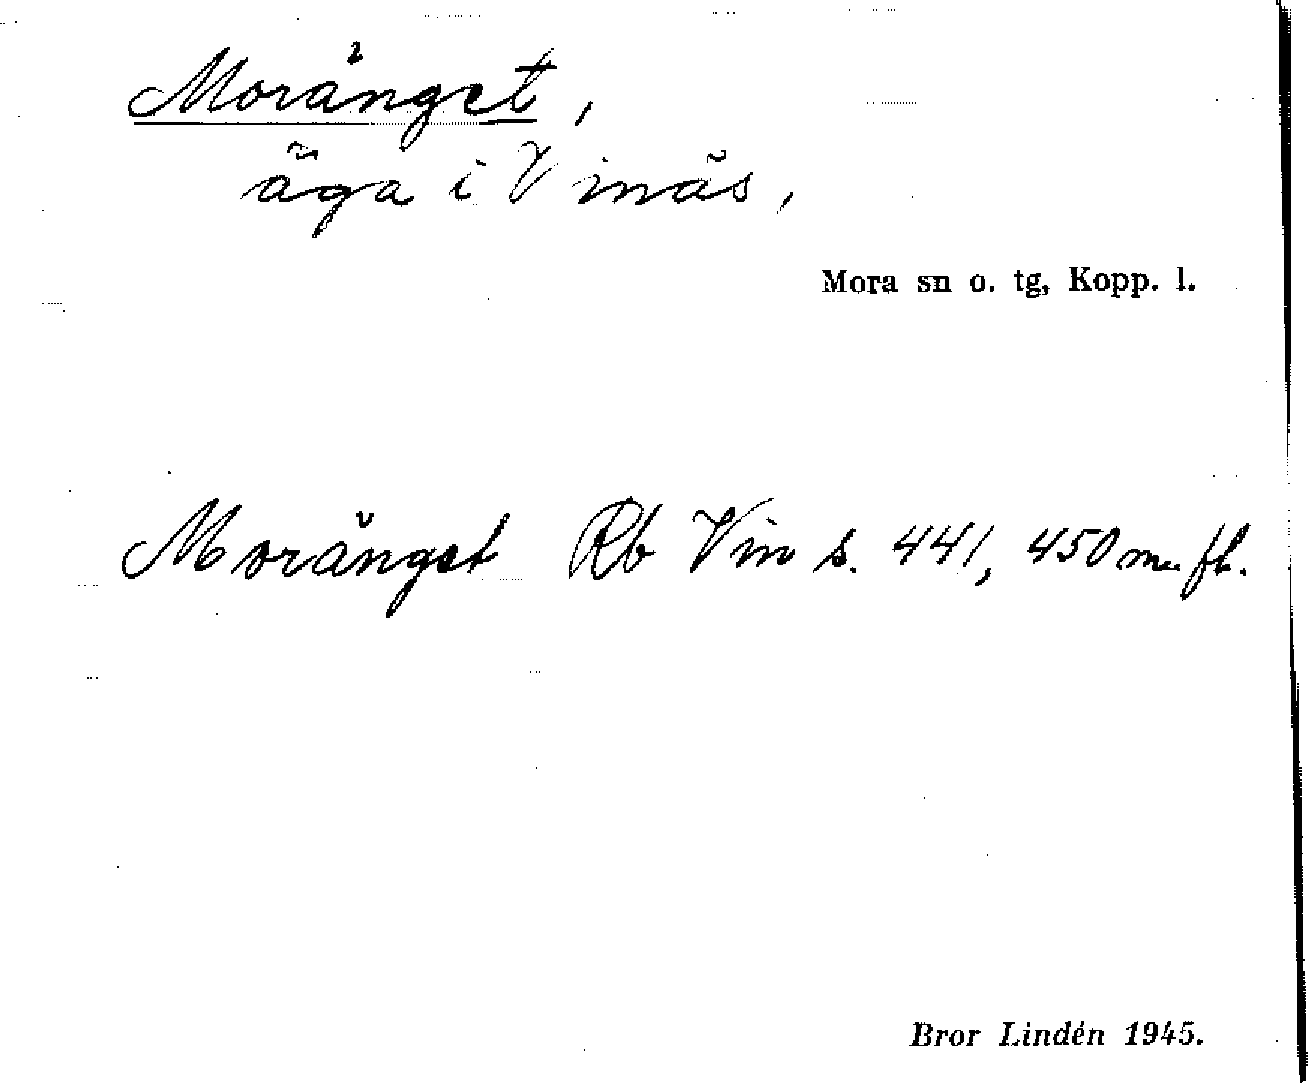 Moränget,
äga i Vinäs,
Mora sn o. tg, Kopp. l.
Moränget Rb Vin s. 441, 450 m. fl.
Bror Lindén 1945.